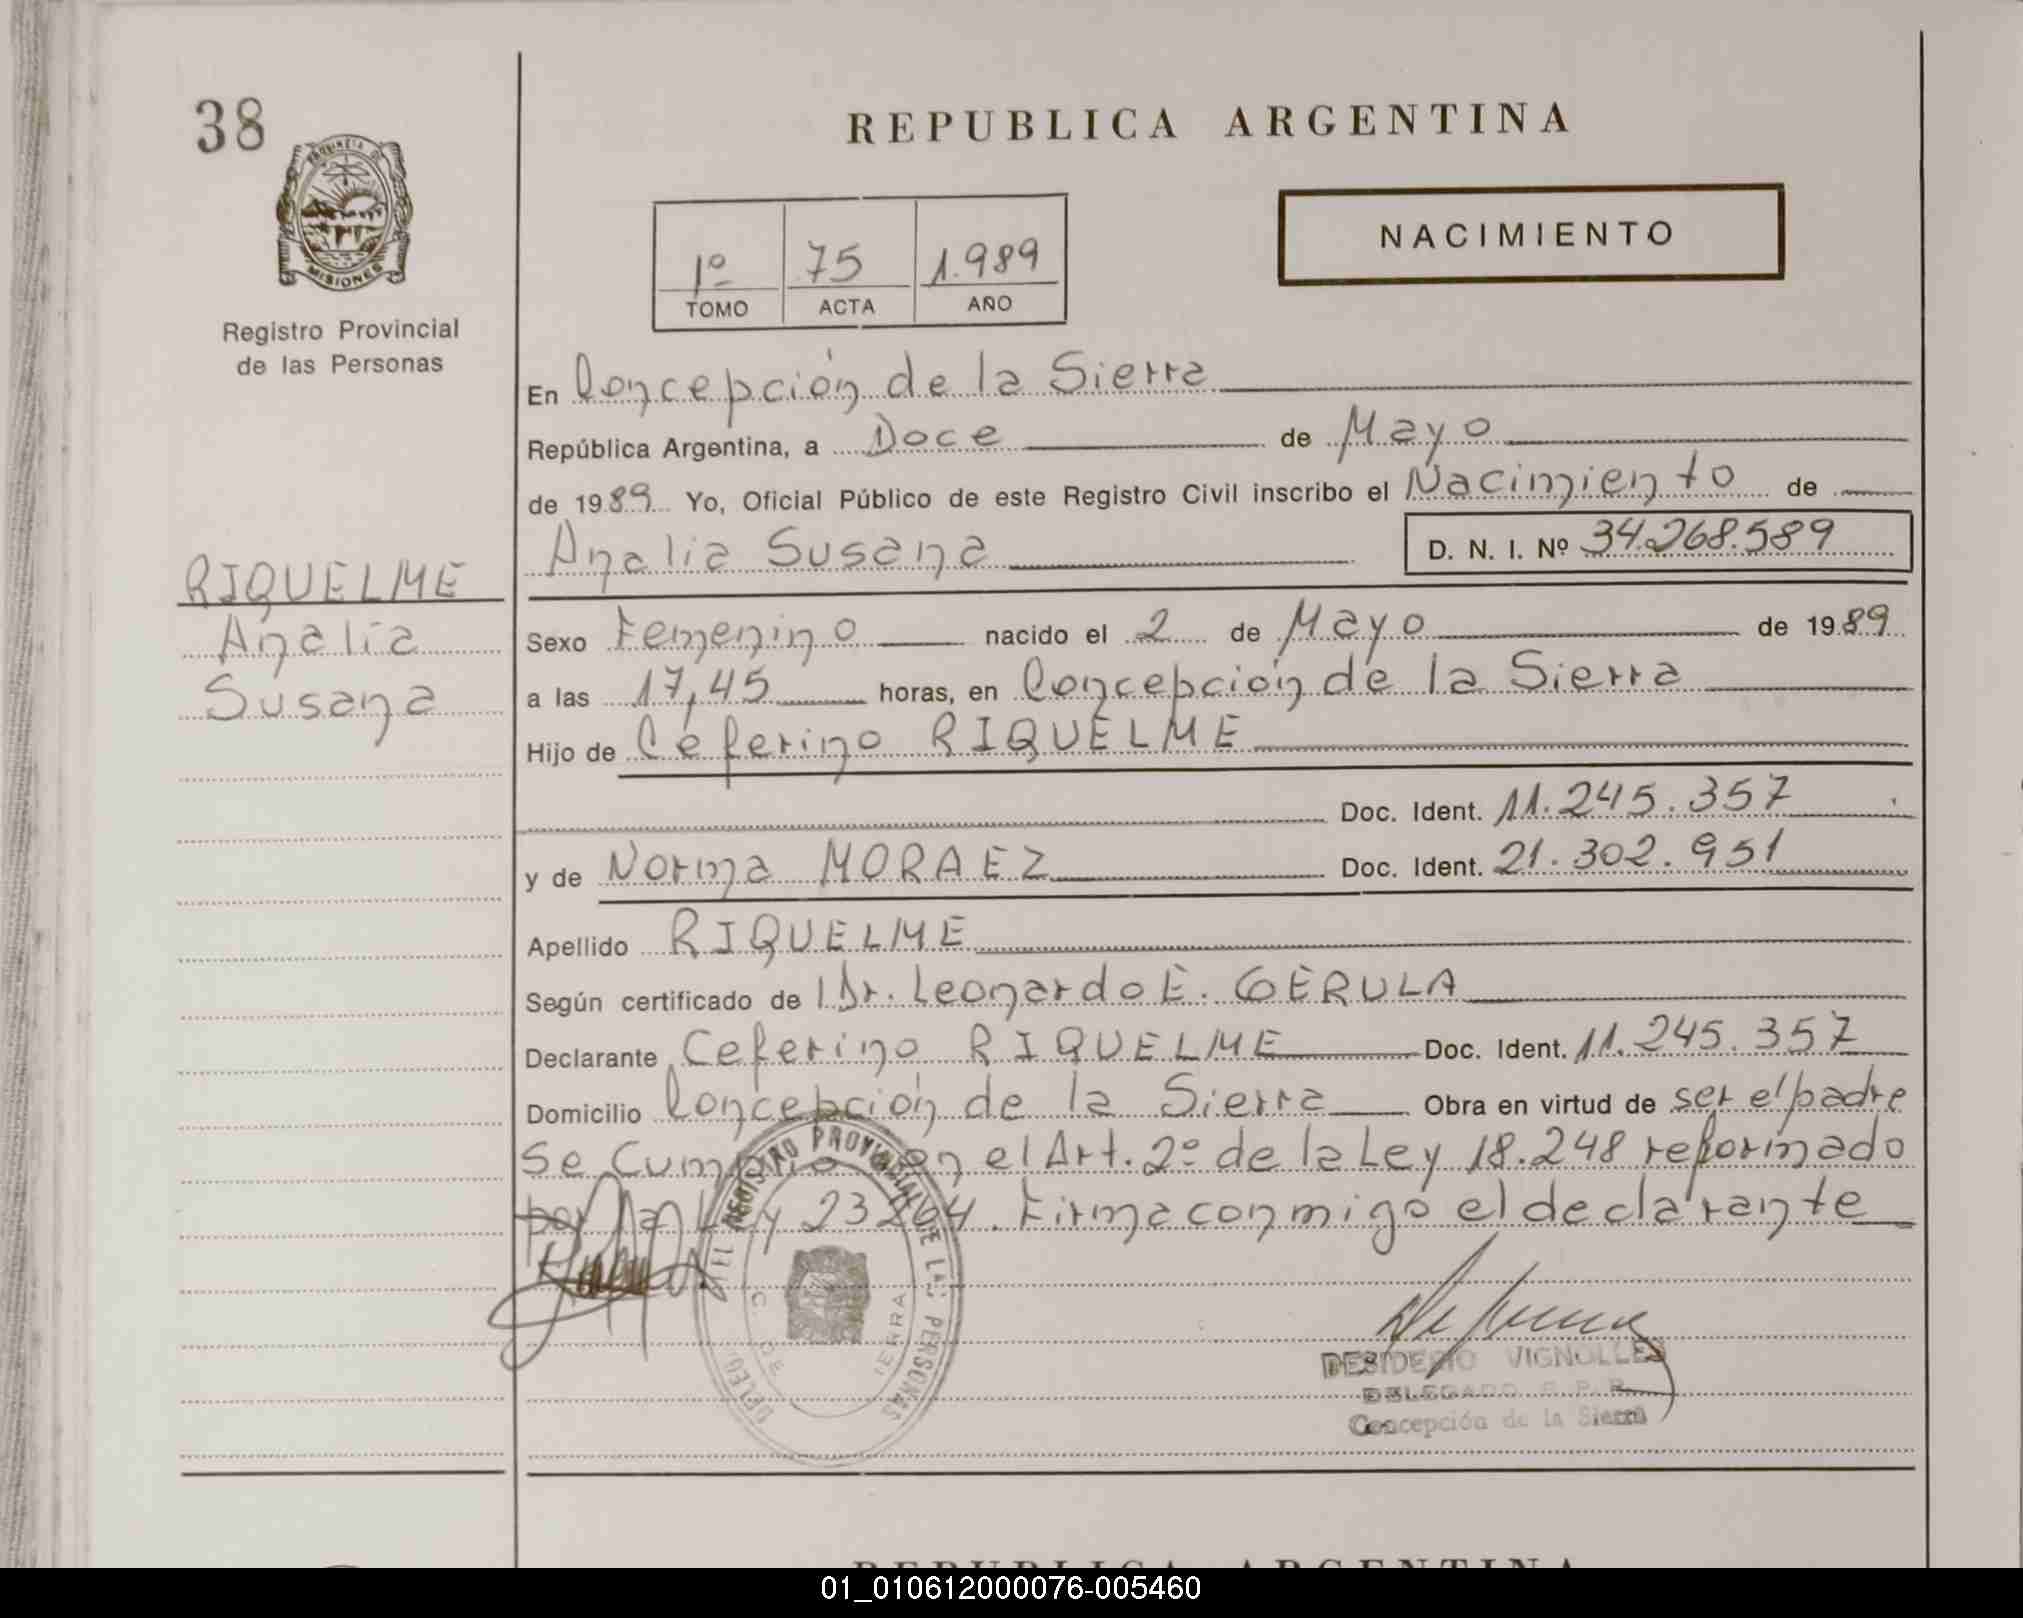 38
PROVINCIA DE
MISIONES
Registro Provincial
de las Personas
RIQUELME
Analia
Susana
REPUBLICA ARGENTINA
1º 75 1.989
TOMO ACTA AÑO
NACIMIENTO
En Concepción de la Sierra
República Argentina, a Doce de Mayo
de 1989 Yo, Oficial Público de este Registro Civil inscribo el Nacimiento de
Analia Susana D. N. I. Nº 34.268.589
Sexo Femenino nacido el 2 de Mayo de 1989
a las 17,45 horas, en Concepción de la Sierra
Hijo de Ceferino RIQUELME
Doc. Ident. 11.245.357
y de Norma MORAEZ Doc. Ident. 21.302.951
Apellido RIQUELME
Según certificado de Dr. Leonardo E. GERULA
Declarante Ceferino RIQUELME Doc. Ident. 11.245.357
Domicilio Concepción de la Sierra Obra en virtud de ser el padre
Se Cumplio con el Art. 2º de la Ley 18.248 reformado
por la Ley 23264. Firma conmigo el declarante
REGISTRO PROVINCIAL DE LAS PERSONAS
DESIDERIO VIGNOLLES
DELEGADO R. P. P.
Concepción de la Sierra
REPUBLICA ARGENTINA
01_010612000076-005460